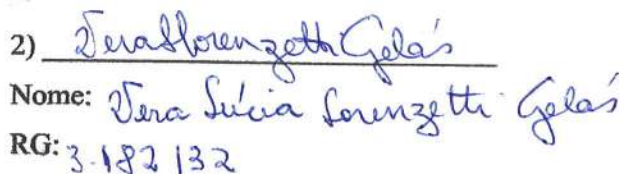 2) Vera Lorenzetti Gelás
Nome: Vera Lúcia Lorenzetti Gelás
RG: 3.182132